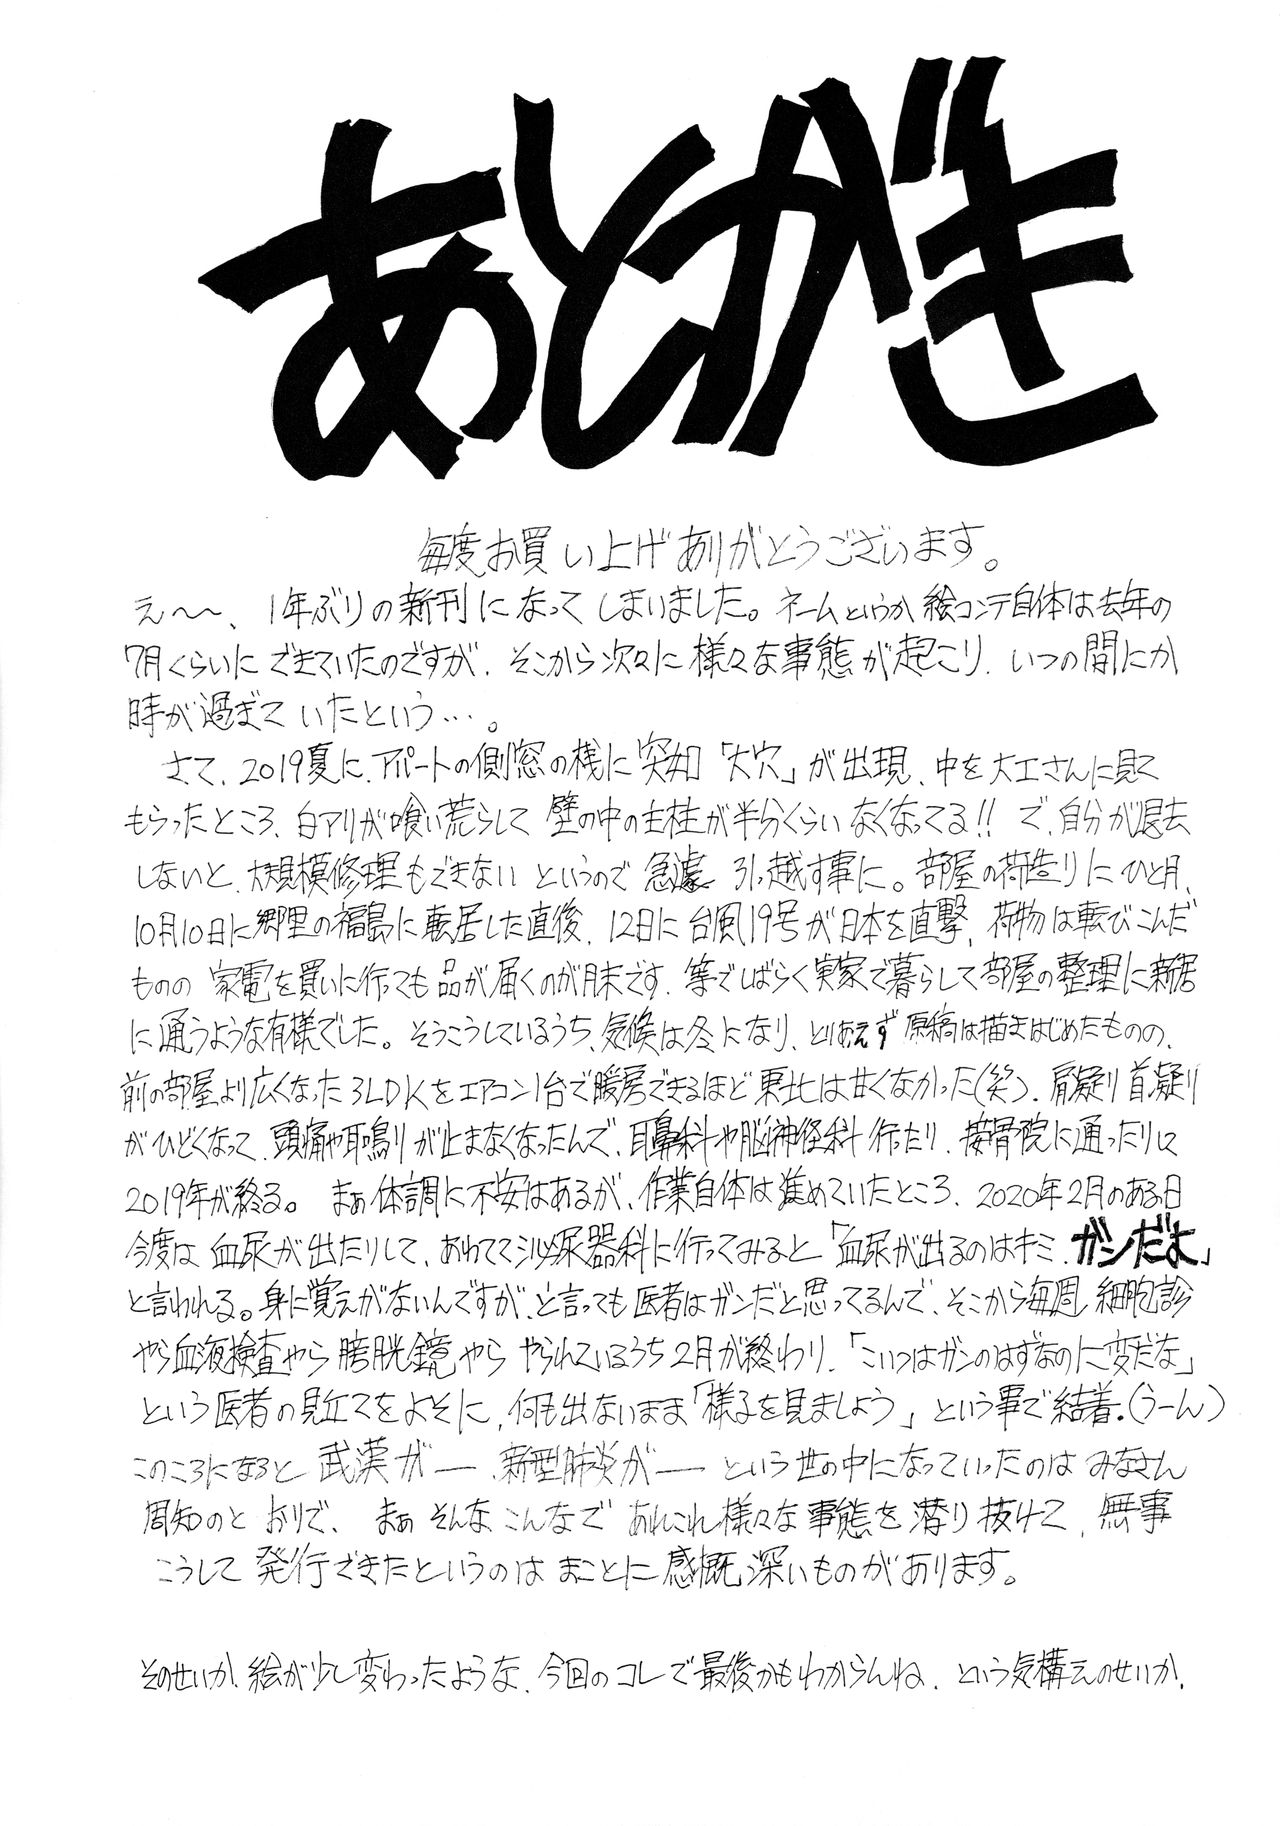 あとがき
毎度お買い上げありがとうございます。
え〜〜、1年ぶりの新刊になってしまいました。ネームというか、絵コンテ自体は去年の
7月くらいにできていたのですが、そこから次々に様々な事態が起こり、いつの間にか
時が過ぎていたという…。
さて、2019夏に、アパートの側窓の桟に突如「大穴」が出現、中を大工さんに見て
もらったところ、白アリが喰い荒らして壁の中の主柱が半分くらいなくなってる!!で、自分が退去
しないと、大規模修理もできないというので急遽引っ越す事に。部屋の荷造りにひと月、
10月10日に郷里の福島に転居した直後、12日に台風19号が日本を直撃、荷物は転びこんだ
ものの家電を買いに行っても品が届くのが月末です、等でしばらく実家で暮らして部屋の整理に新居
に通うような有様でした。そうこうしているうち、気候は冬になり、とりあえず原稿は描きはじめたものの、
前の部屋より広くなった3LDKをエアコン1台で暖房できるほど東北は甘くなかった(笑)、肩凝り首凝り
がひどくなって、頭痛や耳鳴りが止まなくなったんで、耳鼻科や脳神経科行たり、接骨院に通ったりして
2019年が終る。まぁ体調に不安はあるが、作業自体は進めていたところ、2020年2月のある日
今度は血尿が出たりして、あわてて泌尿器科に行ってみると「血尿が出るのはキミ、ガンだよ」
と言われる。身に覚えがないんですが、と言っても医者はガンだと思ってるんで、そこから毎週細胞診
やら血液検査やら膀胱鏡やらやられているうち2月が終わり、「こいつはガンのはずなのに変だな」
という医者の見立てをよそに、何も出ないまま「様子を見ましょう」という事で結着。(うーん)
このころになると武漢がー、新型肺炎がーという世の中になっていったのはみなさん
周知のとおりで、まぁそんなこんなであれこれ様々な事態を潜り抜けて、無事
こうして発行できたというのはまことに感慨深いものがあります。
そのせいか、絵が少し変わったような、今回のコレで最後かもわからんね、という気構えのせいか、